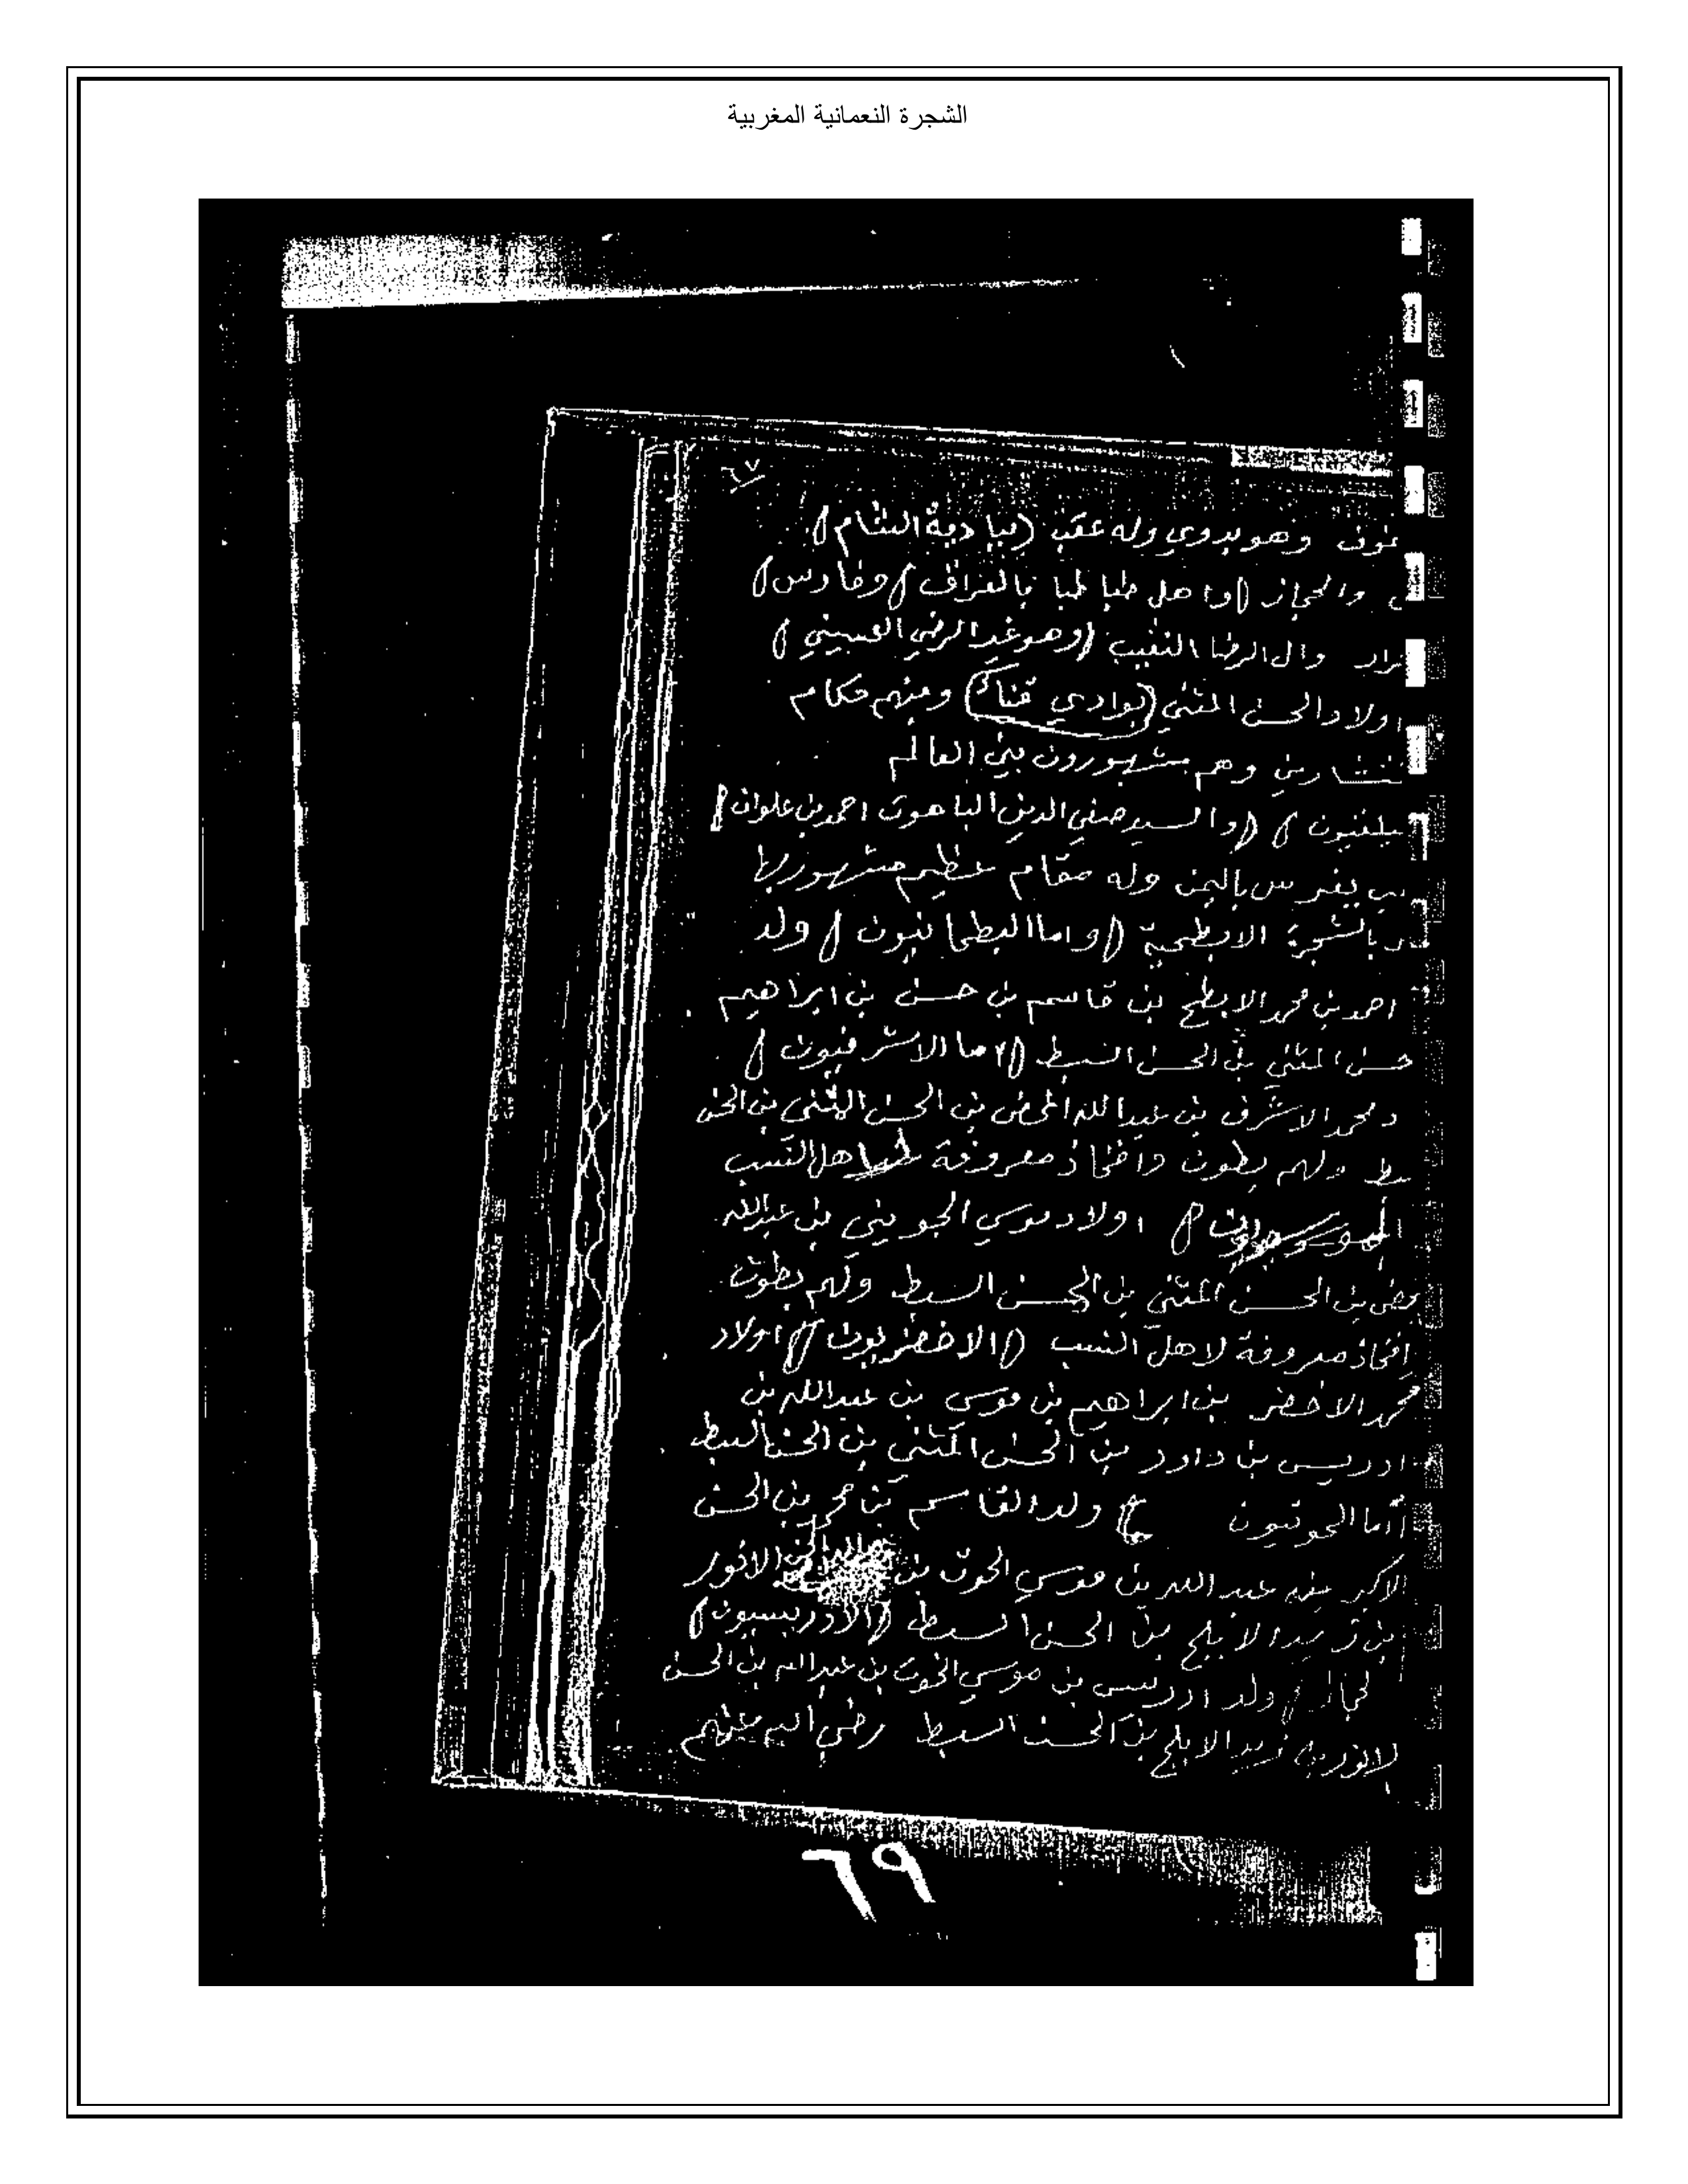 الشجرة النعمانية المغربية
٦٧
وهو بدوي وله عقب (ببادية الشام)
والحجاز (واهل طباطبا بالعراق) وفارس)
وال الرضا النقيب (وهو عبد الرضي)
اولاد الحسن المثنى (بوادي) ومنهم حكام
وهم مشهورون بين العالم
(والسيد صفي الدين احمد بن علوان)
بيفرس باليمن وله مقام عظيم مشهور بها
بالشجرة الابطحية (واما البطحانيون) ولد
احمد بن محمد الابطح بن قاسم بن حسن بن ابراهيم
حسن المثنى بن الحسن السبط (اما الاشرفيون)
محمد الاشرف بن عبد الله المحض بن الحسن المثنى بن الحسن
ولهم بطون وافخاذ معروفة اهل النسب
اولاد موسي بن عبد الله
بن الحسن المثنى بن الحسن السبط ولهم بطون
افخاذ معروفة لاهل النسب (الاخضريون) اولاد
محمد الاخضر بن ابراهيم بن موسي بن عبد الله بن
ادريس بن داود بن الحسن المثنى بن الحسن السبط
اما الحوتيون ولد القاسم بن محمد بن الحسن
الاكبر بن عبد الله بن موسي الحوت بن الانور
بن زيد الابلج بن الحسن السبط (الادريسيون)
ولد ادريس بن موسي الحوت بن عبد الله بن الحسن
الانور بن زيد الابلج بن الحسن السبط رضي الله عنهم
٦٩